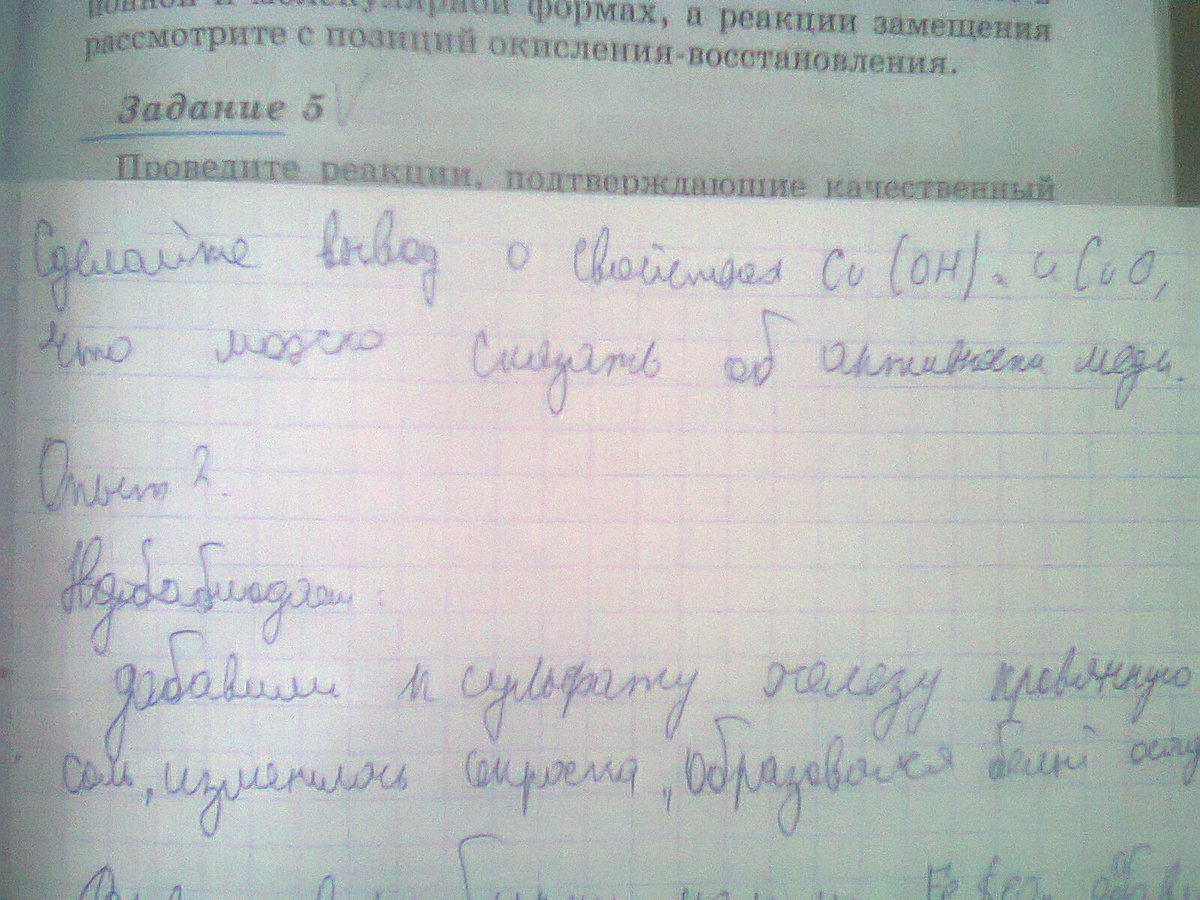 ионной и молекулярной формах, а реакции замещения
рассмотрите с позиций окисления-восстановления.
Задание 5
Проведите реакции, подтверждающие качественный
Сделайте вывод о свойствах Cu(OH)₂ и CuO,
что можно сказать об активности меди.
Опыт 2.
добавили к сульфату железу кровянную
соль, изменилась окраска, образовался белый осад